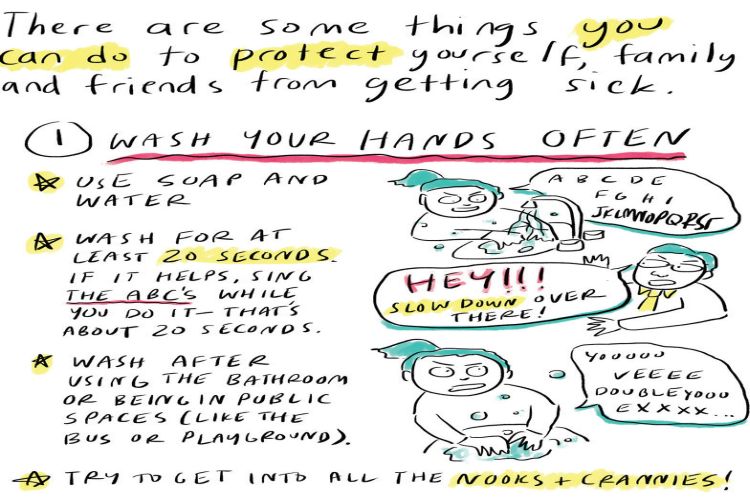 There are some things you
can do to protect yourself, family
and friends from getting sick.
1 WASH YOUR HANDS OFTEN
USE SOAP AND
WATER
WASH FOR AT
LEAST 20 SECONDS.
IF IT HELPS, SING
THE ABC'S WHILE
YOU DO IT - THAT'S
ABOUT 20 SECONDS.
WASH AFTER
USING THE BATHROOM
OR BEING IN PUBLIC
SPACES (LIKE THE
BUS OR PLAYGROUND).
TRY TO GET INTO ALL THE NOOKS + CRANNIES!
A B C D E
F G H I
JKLMNOPQRST
HEY!!!
SLOW DOWN OVER
THERE!
YOUOOU
VEEEE
DOUBLEYOOU
EXXXX...